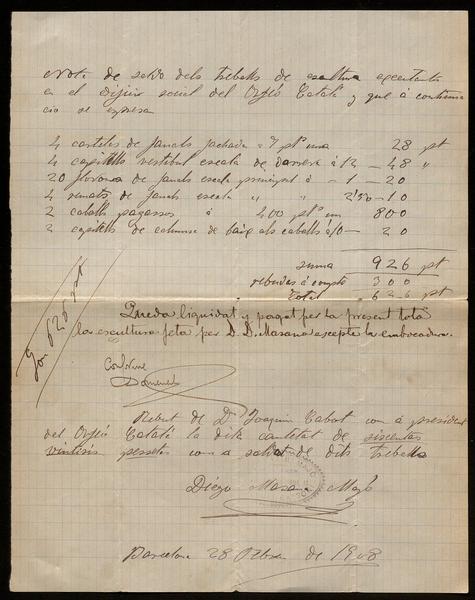 Nota de saldo dels treballs de escultura executants
en el edifici social del Orfeó Català y que á continua
ció se expresa
4 carteles de fanals fachada á 7 pts una 28 pt
4 capitells vestibul escala de darrera á 12 — 48 "
20 florons de fanals escala principal á — 1 — 20
4 remats de fanals escala " " 2'50 — 10
2 caballs pagassos á 400 pts un 800
2 capitells de columna de baix els caballs á 10 — 20
suma 926 pt
rebudas á compte 300
Total 626 pt
Queda liquidat y pagat per la present tota
la escultura feta per D. D. Masana excepte la embocadura.
Son 626 pt
Conforme
Domenech
Rebut de Dn Joaquim Cabot com á president
del Orfeó Català la dita cantitat de siscentas
vintisis pessetas com a saldo de dits treballs
Diego Masana Majó
Barcelona 28 Febrer de 1908